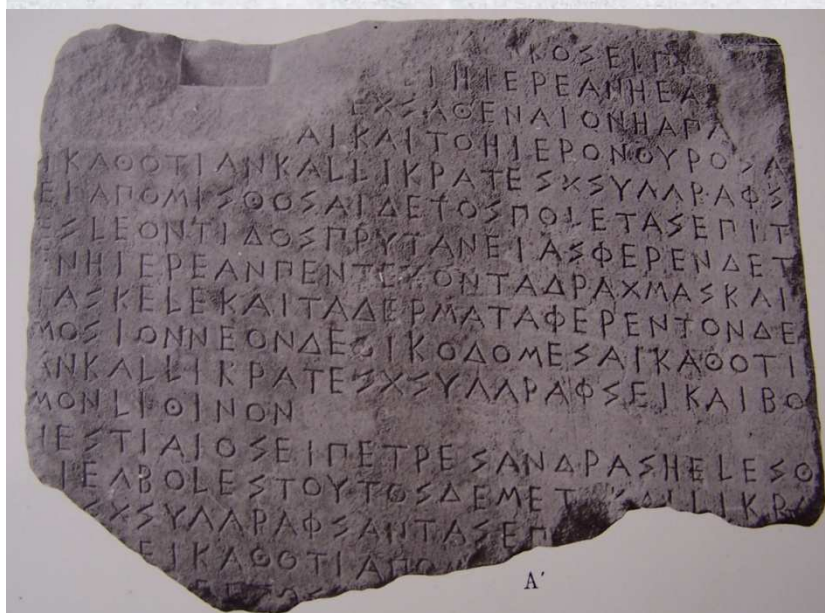 ΚΟΣΕΙΠ
ΙΗΙΕΡΕΑΝΗΕΑ
ΕΧΣΑΘΕΝΑΙΟΝΗΑΠΑ
ΑΙΚΑΙΤΟΗΙΕΡΟΝΘΥΡΟΣΑ
ΙΚΑΘΟΤΙΑΝΚΑΛΛΙΚΡΑΤΕΣΧΣΥΓΓΡΑΦΣ
ΕΙΑΠΟΜΙΣΘΟΣΑΙΔΕΤΟΣΠΟΛΕΤΑΣΕΠΙΤ
ΕΣΛΕΟΝΤΙΔΟΣΠΡΥΤΑΝΕΙΑΣΦΕΡΕΝΔΕΤ
ΕΝΗΙΕΡΕΑΝΠΕΝΤΕΚΟΝΤΑΔΡΑΧΜΑΣΚΑΙ
ΤΑΣΚΕΛΕΚΑΙΤΑΔΕΡΜΑΤΑΦΕΡΕΝΤΟΝΔΕ
ΜΟΣΙΟΝΝΕΟΝΔΕΟΙΚΟΔΟΜΕΣΑΙΚΑΘΟΤΙ
ΑΝΚΑΛΛΙΚΡΑΤΕΣΧΣΥΓΓΡΑΦΣΕΙΚΑΙΒΟ
ΜΟΝΛΙΘΙΝΟΝ
ΗΕΣΤΙΑΙΟΣΕΙΠΕΤΡΕΣΑΝΔΡΑΣΗΕΛΕΣΘ
ΙΕΓΒΟΛΕΣΤΟΥΤΟΣΔΕΜΕΤΑΚΑΛΛΙΚΡ
ΣΧΣΥΓΓΡΑΦΣΑΝΤΑΣΕΠ
ΕΙΚΑΘΟΤΙΑΠΟ
Α΄